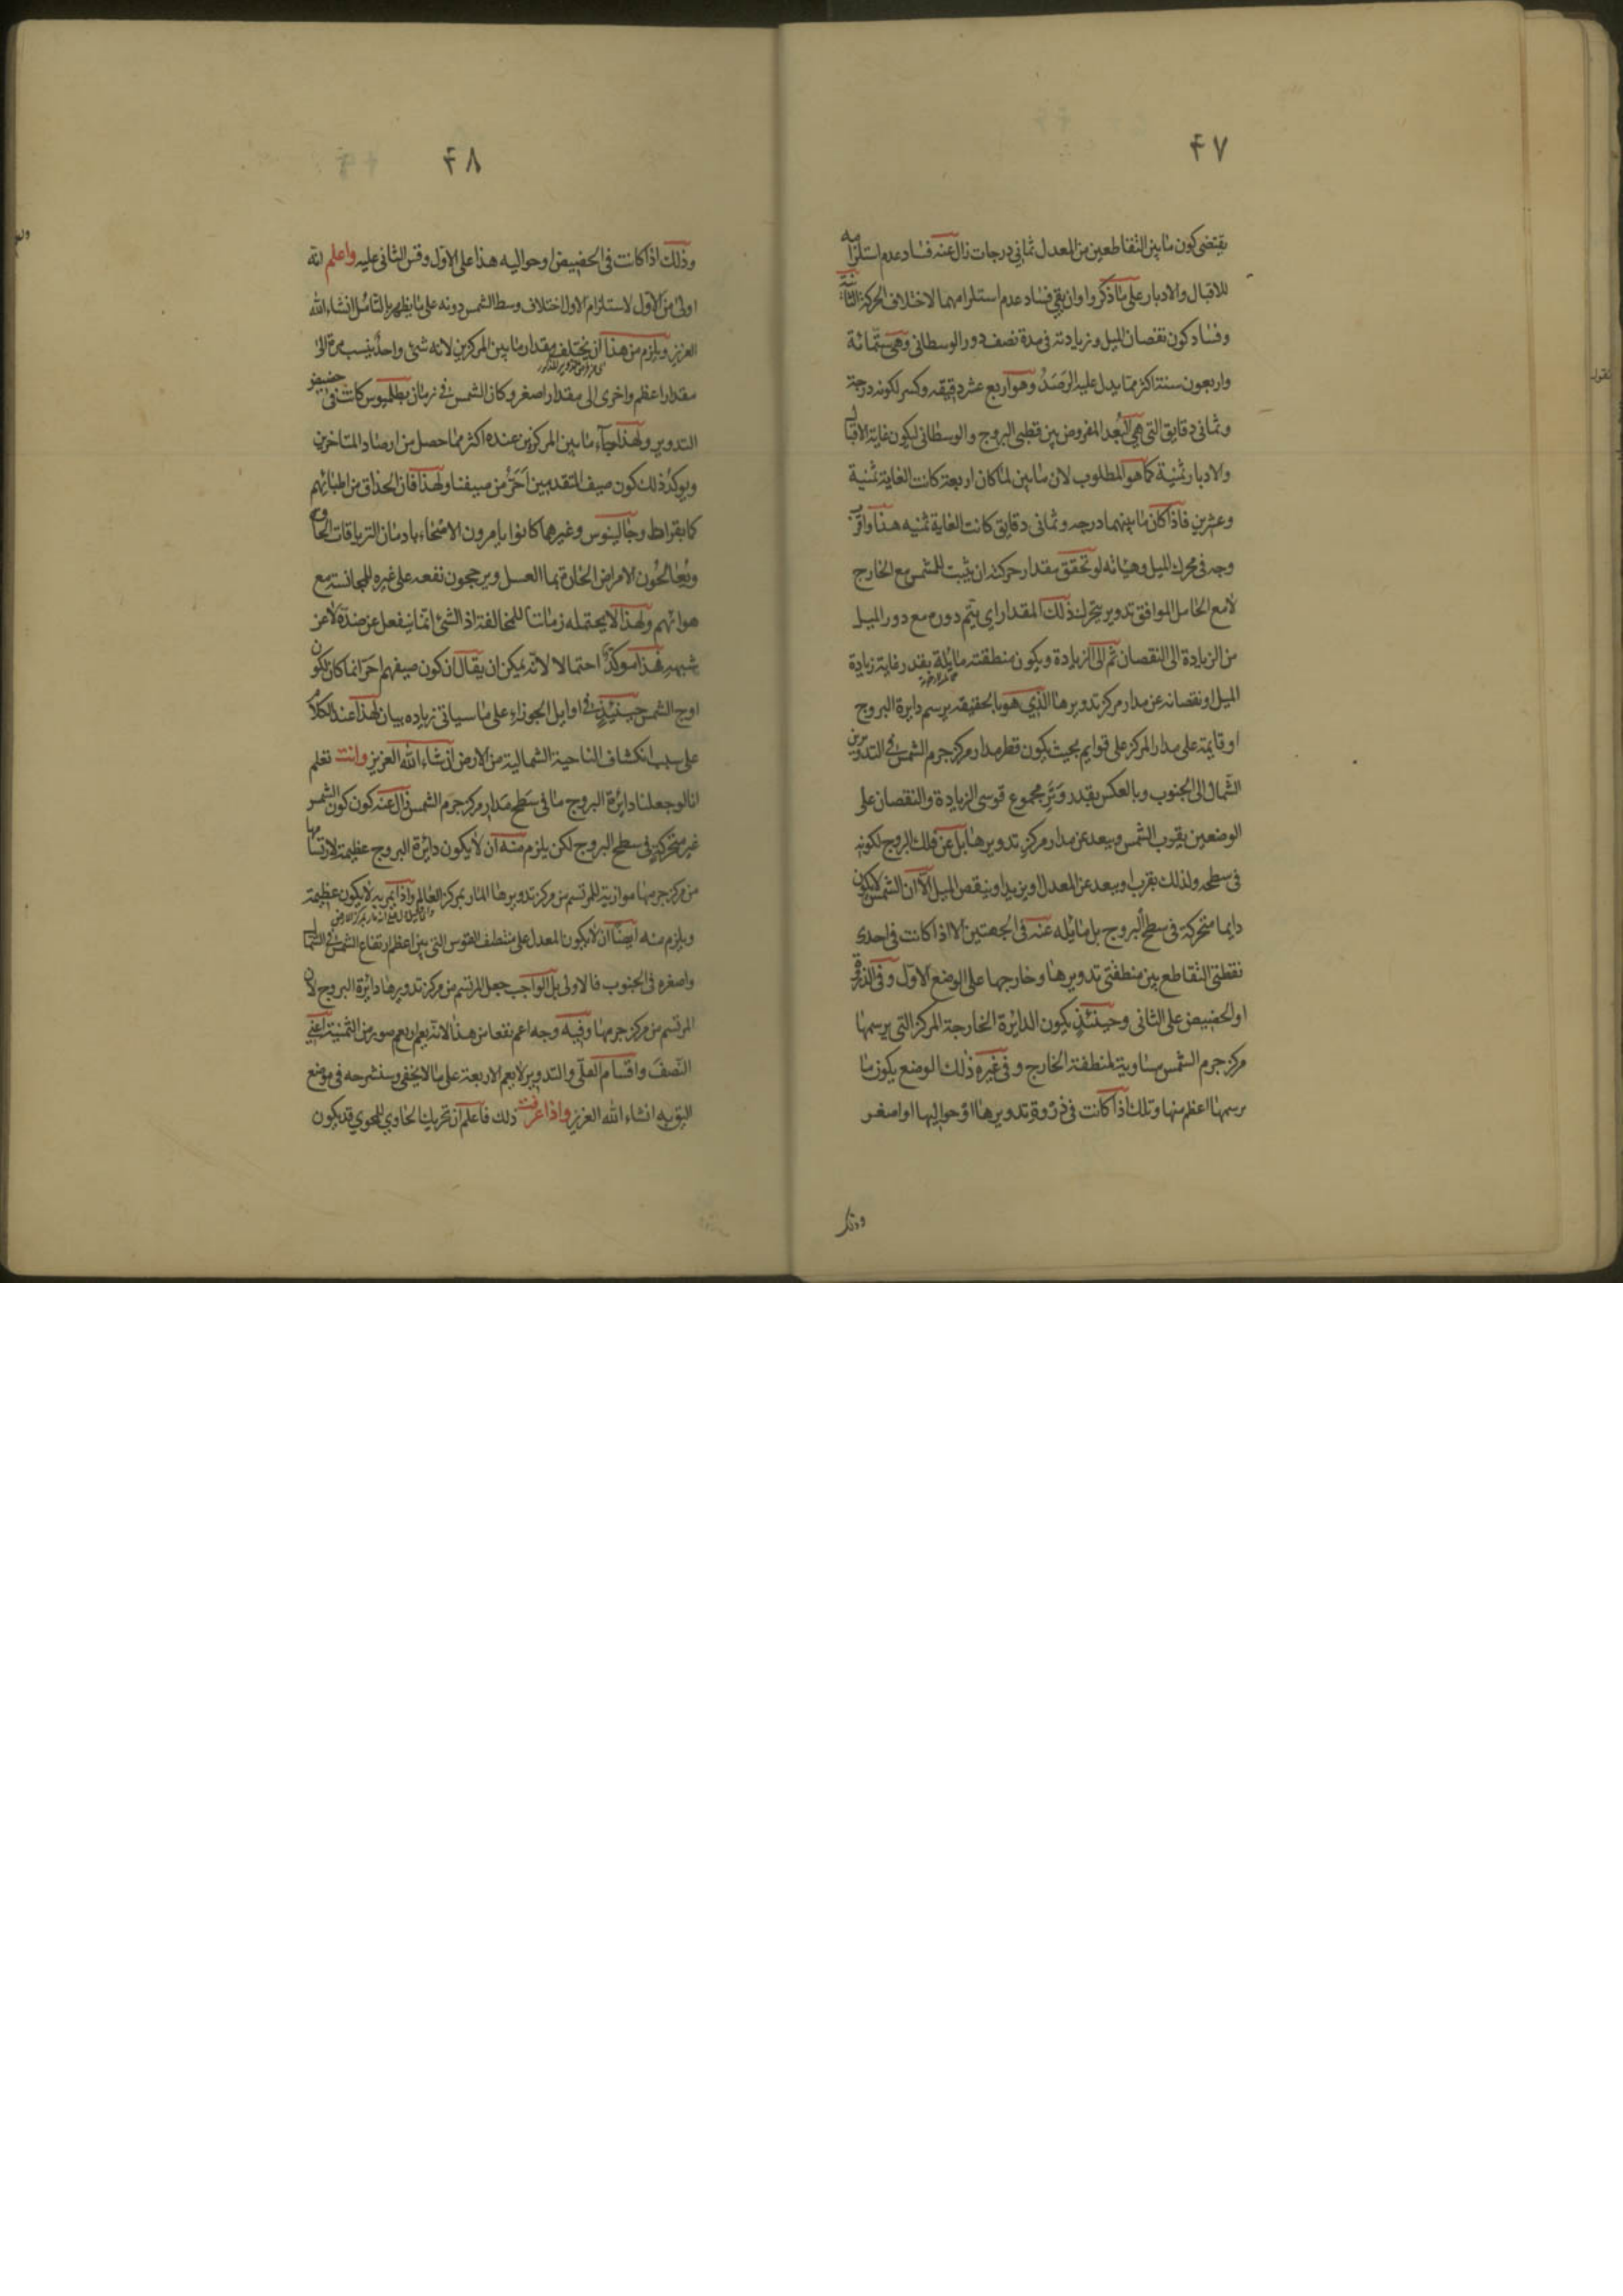 ۴۷
يقتضى كون ما بين التقاطعين من المعدل ثمانى درجات زال عنه فساد عدم استلزامه
للاقبال والادبار على ما ذكروا وان بقى فساد عدم استلزامهما لاختلاف الحركة الثانية
وفساد كون نقصان الميل وزيادته فى مدة نصف دور الوسطانى وهى ستمائة
واربعون سنة اكثر مما يدل عليه الرصد وهو اربع عشر دقيقه وكسر لكونه درجة
وثمانى دقايق التى هى البعد المفروض بين قطبى البروج والوسطانى ليكون غاية الاقبال
والادبار ثمنية كما هو المطلوب لان ما بين لما كان اربعة كانت الغاية ثمنية
وعشرين فاذا كان ما بينهما درجه وثمانى دقايق كانت الغاية ثمنيه هذا واقرب
وجه فى محرك الميل وهياته لو تحقق مقدار حركته ان يثبت للشمس مع الخارج
لا مع الحامل الموافق تدوير يتحرك ذلك المقدار اى يتم دوره مع دور الميل
من الزيادة الى النقصان ثم الى الزيادة ويكون منطقته مايلة بقدر غاية زيادة
الميل او نقصانه عن مدار مركز تدويرها الذى هو بالحقيقه يرسم دايرة البروج
او قايمة على مدار المركز على قوايم بحيث يكون قطر مدار مركز جرم الشمس فى التدوير من
الشمال الى الجنوب وبالعكس بقدر وتر مجموع قوسى الزيادة والنقصان على
الوضعين يقرب الشمس ويبعد عن مدار مركز تدويرها بل عن فلك البروج لكونه
فى سطحه ولذلك يقرب او يبعد عن المعدل او يزيد او ينقص الميل الا ان الشمس لا يكون
دايما متحركة فى سطح البروج بل مايله عنه فى الجهتين الا اذا كانت فى احدى
نقطتى التقاطع بين منطقتى تدويرها وخارجها على الوضع الاول وفى الذروة
او الحضيض على الثانى وحينئذ يكون الدايرة الخارجة المركز التى يرسمها
مركز جرم الشمس مساوية لمنطقة الخارج وفى غيره ذلك الوضع يكون ما
يرسمها اعظم منها وتلك اذا كانت فى ذروة تدويرها او حواليها او اصغر
وذلك
۴۸
وذلك اذا كانت فى الحضيض او حواليه هذا على الاول وقس الثانى عليه واعلم انه
اولى من الاول لاستلزام الاول اختلاف وسط الشمس دونه على ما يظهر بالتامل انشاء الله
العزيز ويلزم من هذا ان يختلف مقدار ما بين المركزين لانه شئ واحد ينسب مرة الى
مقدار اعظم واخرى الى مقدار اصغر وكان الشمس فى زمان بطلميوس كانت فى حضيض
التدوير ولهذا جاء ما بين المركزين عنده اكثر مما حصل من ارصاد المتاخرين
ويوكد ذلك كون صيف المتقدمين احر من صيفنا ولهذا فان الحذاق من اطبائهم
كابقراط وجالينوس وغيرهما كانوا يامرون الاصحاء بادمان الترياقات الحارة
ويعالجون الامراض الحارة بما العسل ويرجحون نفعه على غيره للمجانسة مع
هوائهم ولهذا لا يحتمله زماننا للمخالفة اذ الشئ انما ينفعل عن ضده لا عن
شبهه هذا موكد احتمالا لانه يمكن ان يقال ان كون صيفهم احر انما كان لكون
اوج الشمس حينئذ فى اوايل الجوزاء على ما سياتى زياده بيان لهذا عند الكلام
على سبب انكشاف الناحية الشمالية من الارض ان شاء الله العزيز وانت تعلم
انا لو جعلنا دايرة البروج ما فى سطح مدار مركز جرم الشمس زال عنه كون كون الشمس
غير متحركة فى سطح البروج لكن يلزم منه ان لا يكون دائرة البروج عظيمة لارتسامها
من مركز جرمها موازية للمرتسم من مركز تدويرها المار بمركز العالم واذا لم يمر به لا يكون عظيمة
ويلزم منه ايضا ان لا يكون المعدل على منتصف القوس التى بين اعظم ارتفاع الشمس فى الشمال
واصغره فى الجنوب فالاولى بل الواجب جعل المرتسم من مركز تدويرها دائرة البروج لان
المرتسم من مركز جرمها وفيه وجه اعم نفعا من هذا لانه يعم اربع صور من الثمنية اعنى
النصف واقسام العلى والتدوير لا يعم الاربعة على ما لا يخفى وسنشرحه فى موضع
اليق به انشاء الله العزيز واذا عرفت ذلك فاعلم ان تحريك الحاوى للمحوى قد يكون